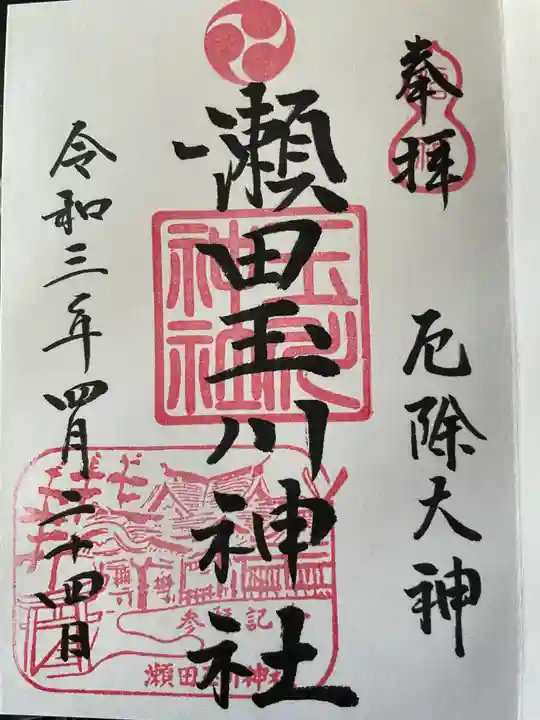 奉拝
厄除大神
瀬田玉川神社
令和三年四月二十四日
玉川
神社
参拝記念
瀬田玉川神社